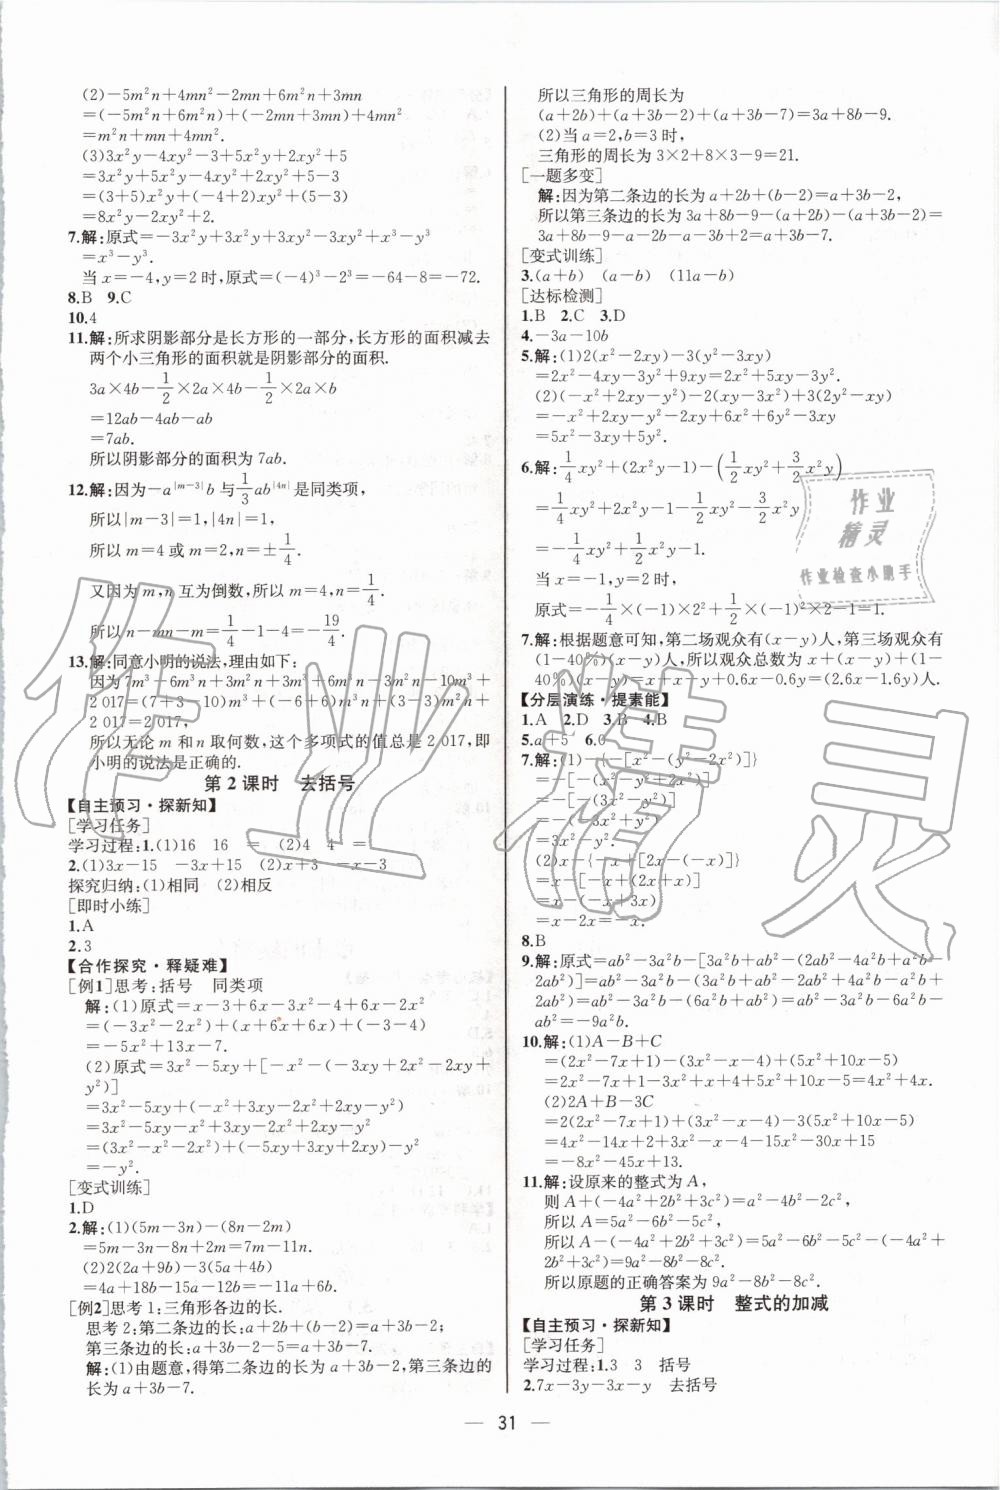 (2)-5m²n+4mn²-2mn+6m²n+3mn
=(-5m²n+6m²n)+(-2mn+3mn)+4mn²
=m²n+mn+4mn².
(3)3x²y-4xy²-3+5x²y+2xy²+5
=3x²y+5x²y-4xy²+2xy²+5-3
=(3+5)x²y+(-4+2)xy²+(5-3)
=8x²y-2xy²+2.
7.解:原式=-3x²y+3x²y+3xy²-3xy²+x³-y³
=x³-y³.
当x=-4,y=2时,原式=(-4)³-2³=-64-8=-72.
8.B 9.C
10.4
11.解:所求阴影部分是长方形的一部分,长方形的面积减去
两个小三角形的面积就是阴影部分的面积.
3a×4b-1/2×2a×4b-1/2×2a×b
=12ab-4ab-ab
=7ab.
所以阴影部分的面积为7ab.
12.解:因为-a^|m-3|b与1/3ab^|4n|是同类项,
所以|m-3|=1,|4n|=1,
所以m=4或m=2,n=±1/4.
又因为m,n互为倒数,所以m=4,n=1/4.
所以n-mn-m=1/4-1-4=-19/4.
13.解:同意小明的说法,理由如下:
因为7m³-6m³n+3m²n+3m³+6m³n-3m²n-10m³+
2 017=(7+3-10)m³+(-6+6)m³n+(3-3)m²n+
2 017=2 017,
所以无论m和n取何数,这个多项式的值总是2 017,即
小明的说法是正确的.
第2课时 去括号
【自主预习·探新知】
[学习任务]
学习过程:1.(1)16 16 = (2)4 4 =
2.(1)3x-15 -3x+15 (2)x+3 -x-3
探究归纳:(1)相同 (2)相反
[即时小练]
1.A
2.3
【合作探究·释疑难】
[例1]思考:括号 同类项
解:(1)原式=x-3+6x-3x²-4+6x-2x²
=(-3x²-2x²)+(x+6x+6x)+(-3-4)
=-5x²+13x-7.
(2)原式=3x²-5xy+[-x²-(-3xy+2x²-2xy+
y²)]
=3x²-5xy+(-x²+3xy-2x²+2xy-y²)
=3x²-5xy-x²+3xy-2x²+2xy-y²
=(3x²-x²-2x²)+(-5xy+3xy+2xy)-y²
=-y².
[变式训练]
1.D
2.解:(1)(5m-3n)-(8n-2m)
=5m-3n-8n+2m=7m-11n.
(2)2(2a+9b)-3(5a+4b)
=4a+18b-15a-12b=-11a+6b.
[例2]思考1:三角形各边的长.
思考2:第二条边的长:a+2b+(b-2)=a+3b-2;
第三条边的长:a+3b-2-5=a+3b-7.
解:(1)由题意,得第二条边的长为a+3b-2,第三条边的
长为a+3b-7.
所以三角形的周长为
(a+2b)+(a+3b-2)+(a+3b-7)=3a+8b-9.
(2)当a=2,b=3时,
三角形的周长为3×2+8×3-9=21.
[一题多变]
解:因为第二条边的长为a+2b+(b-2)=a+3b-2,
所以第三条边的长为3a+8b-9-(a+2b)-(a+3b-2)=
3a+8b-9-a-2b-a-3b+2=a+3b-7.
[变式训练]
3.(a+b) (a-b) (11a-b)
[达标检测]
1.B 2.C 3.D
4.-3a-10b
5.解:(1)2(x²-2xy)-3(y²-3xy)
=2x²-4xy-3y²+9xy=2x²+5xy-3y².
(2)(-x²+2xy-y²)-2(xy-3x²)+3(2y²-xy)
=-x²+2xy-y²-2xy+6x²+6y²-3xy
=5x²-3xy+5y².
6.解:1/4xy²+(2x²y-1)-(1/2xy²+3/2x²y)
=1/4xy²+2x²y-1-1/2xy²-3/2x²y
=-1/4xy²+1/2x²y-1.
当x=-1,y=2时,
原式=-1/4×(-1)×2²+1/2×(-1)²×2-1=1.
7.解:根据题意可知,第二场观众有(x-y)人,第三场观众有
(1-40%)(x-y)人,所以观众总数为x+(x-y)+(1-
40%)(x-y)=x+x-y+0.6x-0.6y=(2.6x-1.6y)人.
【分层演练·提素能】
1.A 2.D 3.B 4.B
5.a+5 6.0
7.解:(1)-{-[x²-(y²-2x²)]}
=-[-(x²-y²+2x²)]
=-[-(3x²-y²)]
=-(-3x²+y²)
=3x²-y².
(2)x-{-x+[2x-(-x)]}
=x-[-x+(2x+x)]
=x-(-x+3x)
=x-2x=-x.
8.B
9.解:原式=ab²-3a²b-[3a²b+ab²-(2ab²-4a²b+a²b-
2ab²)]=ab²-3a²b-(3a²b+ab²-2ab²+4a²b-a²b+
2ab²)=ab²-3a²b-(6a²b+ab²)=ab²-3a²b-6a²b-
ab²=-9a²b.
10.解:(1)A-B+C
=(2x²-7x+1)-(3x²-x-4)+(5x²+10x-5)
=2x²-7x+1-3x²+x+4+5x²+10x-5=4x²+4x.
(2)2A+B-3C
=2(2x²-7x+1)+(3x²-x-4)-3(5x²+10x-5)
=4x²-14x+2+3x²-x-4-15x²-30x+15
=-8x²-45x+13.
11.解:设原来的整式为A,
则A+(-4a²+2b²+3c²)=a²-4b²-2c²,
所以A=5a²-6b²-5c²,
所以A-(-4a²+2b²+3c²)=5a²-6b²-5c²-(-4a²+
2b²+3c²)=9a²-8b²-8c².
所以原题的正确答案为9a²-8b²-8c².
第3课时 整式的加减
【自主预习·探新知】
[学习任务]
学习过程:1.3 3 括号
2.7x-3y-3x-y 去括号
— 31 —
作业精灵
作业
精灵
作业检查小助手